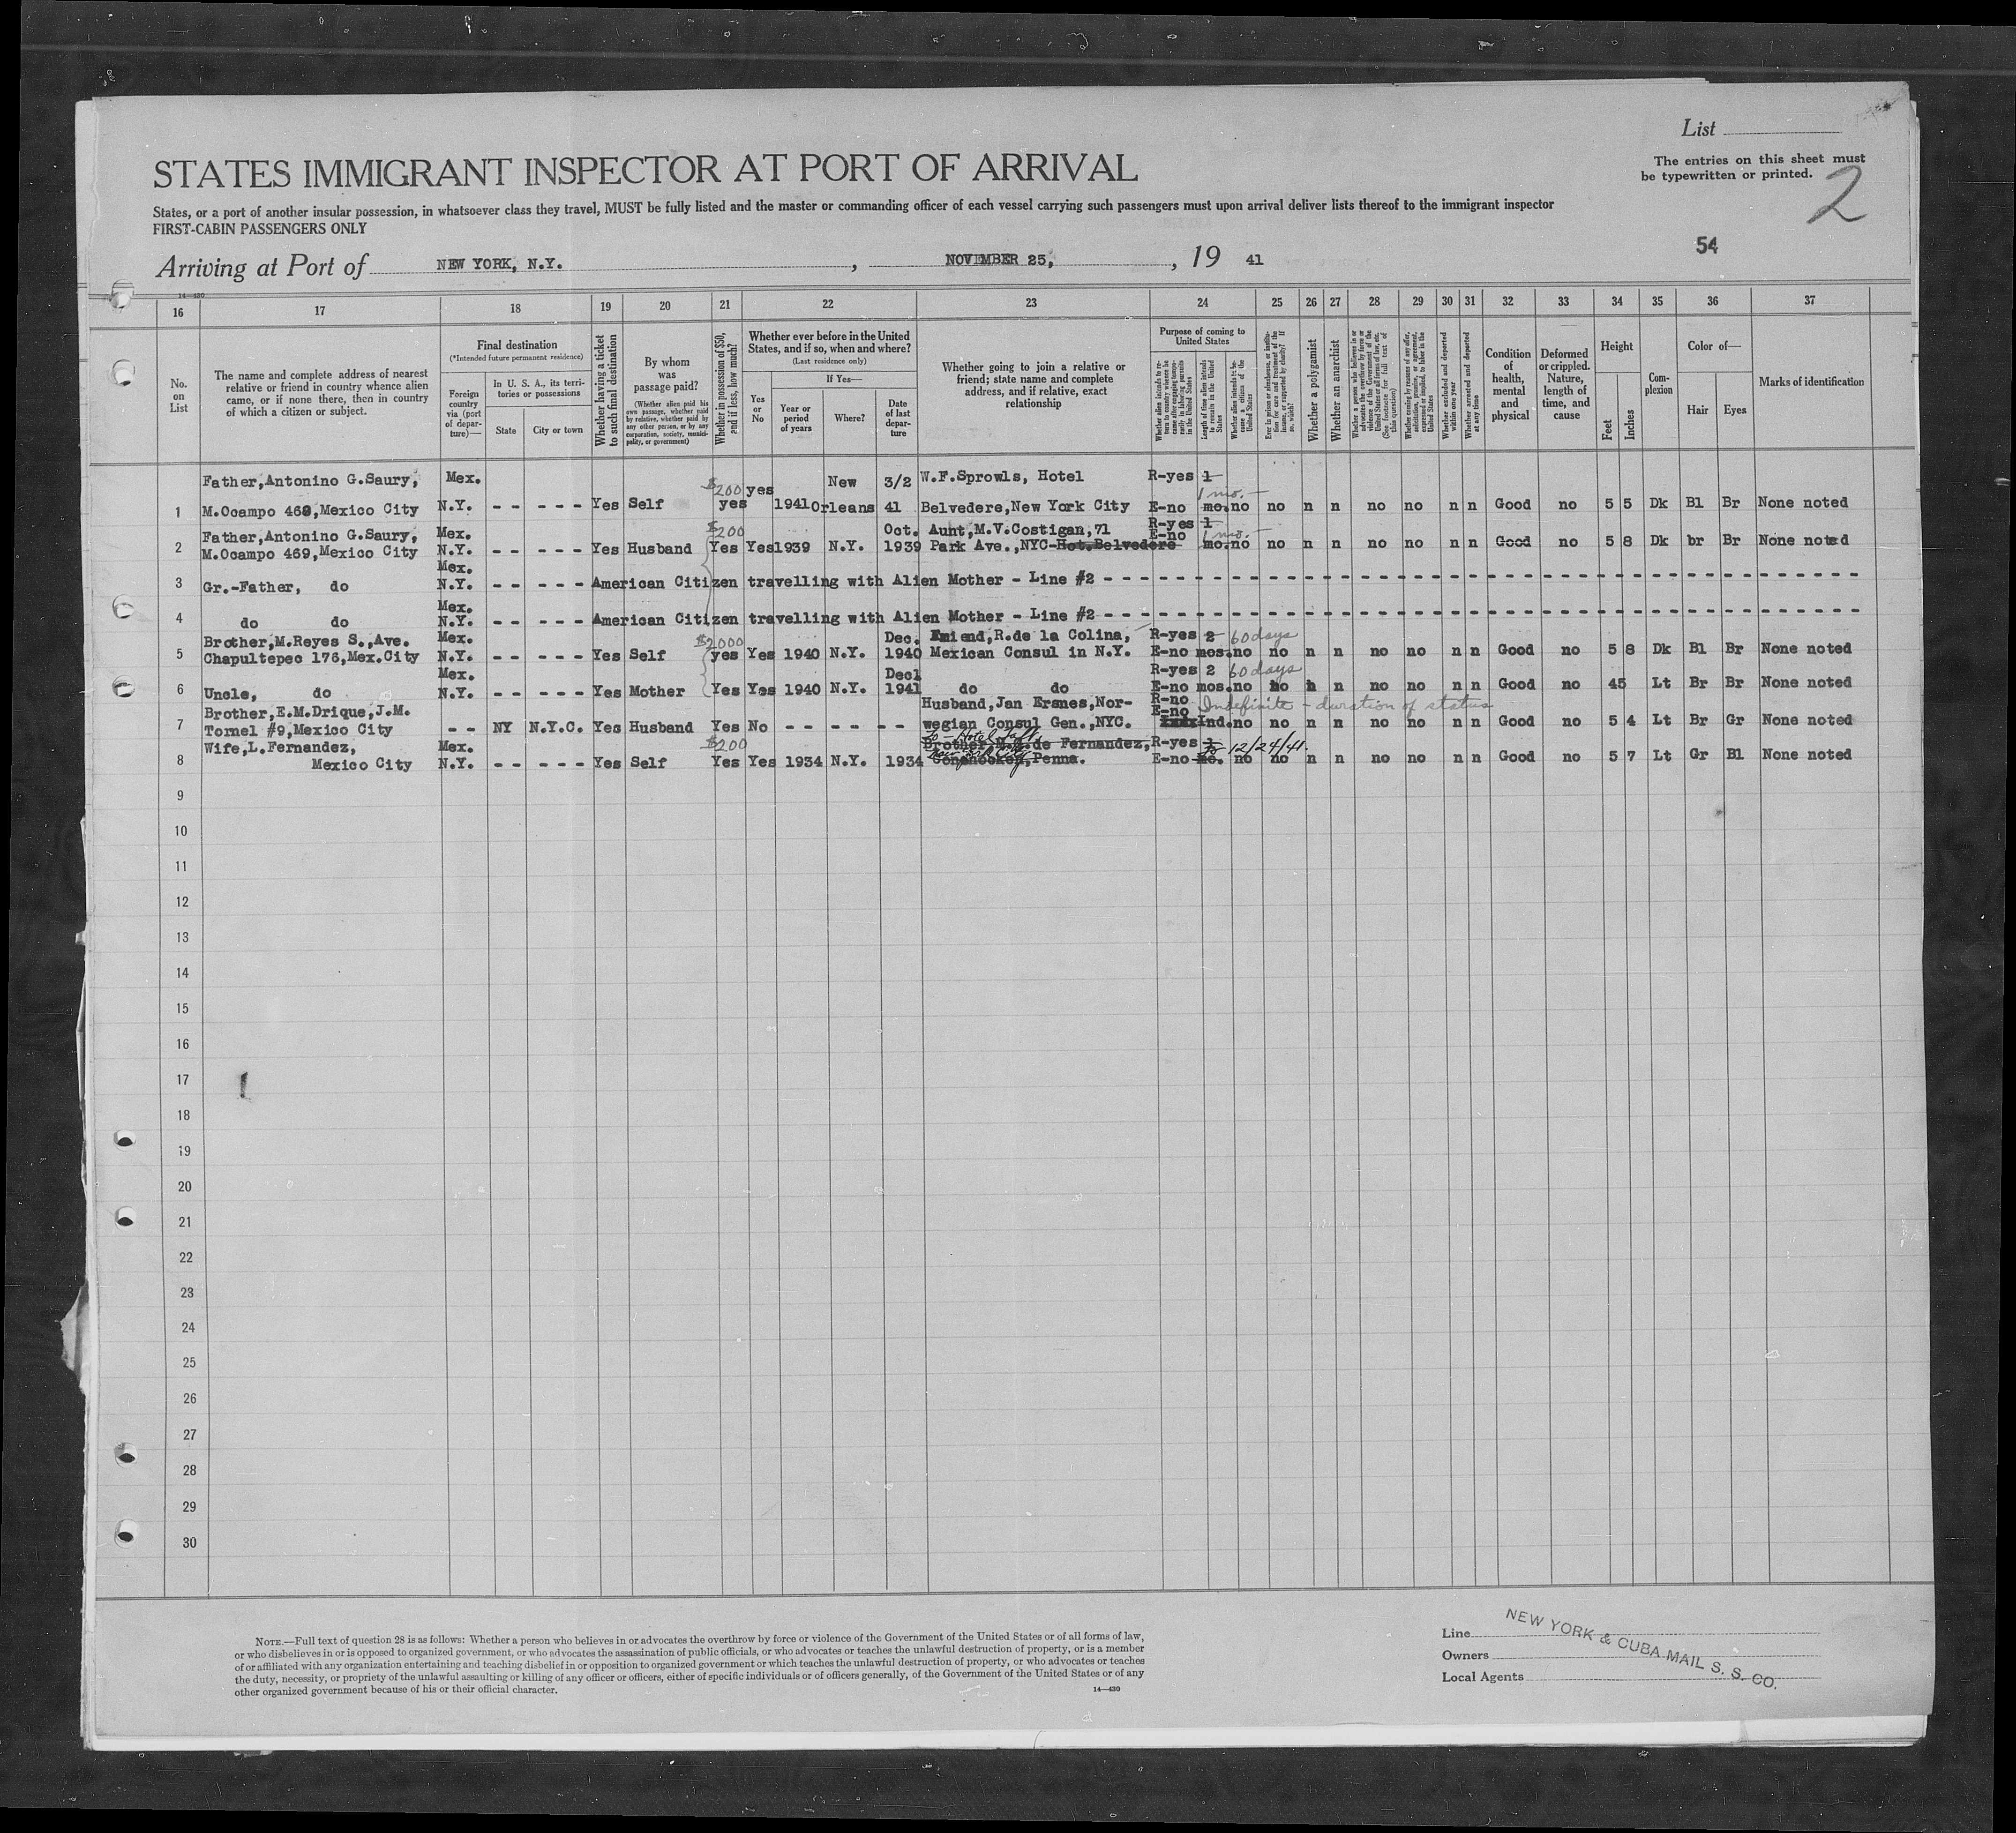 List
The entries on this sheet must
be typewritten or printed.
2
STATES IMMIGRANT INSPECTOR AT PORT OF ARRIVAL
States, or a port of another insular possession, in whatsoever class they travel, MUST be fully listed and the master or commanding officer of each vessel carrying such passengers must upon arrival deliver lists thereof to the immigrant inspector
FIRST-CABIN PASSENGERS ONLY
54
Arriving at Port of NEW YORK, N.Y. , NOVEMBER 25, , 19 41
14—430
16 17 18 19 20 21 22 23 24 25 26 27 28 29 30 31 32 33 34 35 36 37
No. on List
The name and complete address of nearest
relative or friend in country whence alien
came, or if none there, then in country
of which a citizen or subject.
Final destination
(*Intended future permanent residence)
Foreign country via (port of departure)—
In U. S. A., its territories or possessions
State
City or town
Whether having a ticket to such final destination
By whom was passage paid?
(Whether alien paid his own passage, whether paid by relative, whether paid by any other person, or by any corporation, society, municipality, or government)
Whether in possession of $50, and if less, how much?
Whether ever before in the United
States, and if so, when and where?
(Last residence only)
Yes or No
If Yes—
Year or period of years
Where?
Date of last departure
Whether going to join a relative or
friend; state name and complete
address, and if relative, exact
relationship
Purpose of coming to United States
Whether alien intends to return to country whence he came after engaging temporarily in laboring pursuits in the United States
Length of time alien intends to remain in the United States
Whether alien intends to become a citizen of the United States
Ever in prison or almshouse, or institution for care and treatment of the insane, or supported by charity? If so, which?
Whether a polygamist
Whether an anarchist
Whether a person who believes in or advocates the overthrow by force or violence of the Government of the United States or all forms of law, etc. (See footnote for full text of this question)
Whether coming by reasons of any offer, solicitation, promise, or agreement, expressed or implied, to labor in the United States
Whether excluded and deported within one year
Whether arrested and deported at any time
Condition of health, mental and physical
Deformed or crippled. Nature, length of time, and cause
Height
Feet
Inches
Complexion
Color of—
Hair
Eyes
Marks of identification
Father,Antonino G.Saury, Mex. $200 yes New 3/2 W.F.Sprowls, Hotel R-yes 1 1 mo.
1 M.Ocampo 469,Mexico City N.Y. - - - - - Yes Self yes 1941 Orleans 41 Belvedere,New York City E-no mo. no no n n no no n n Good no 5 5 Dk Bl Br None noted
Father,Antonino G.Saury, Mex. $200 Oct. Aunt,M.V.Costigan,71 R-yes 1 1 mo.
2 M.Ocampo 469,Mexico City N.Y. - - - - - Yes Husband Yes Yes 1939 N.Y. 1939 Park Ave.,NYC-Hot.Belvedere E-no mo. no no n n no no n n Good no 5 8 Dk br Br None noted
Mex.
3 Gr.-Father, do N.Y. - - - - - American Citizen travelling with Alien Mother - Line #2 - - -
Mex.
4 do do N.Y. - - - - - American Citizen travelling with Alien Mother - Line #2 - - -
Brother,M.Reyes S.,Ave. Mex. $2000 Dec. Friend,R.de la Colina, R-yes 2 60 days
5 Chapultepec 176,Mex.City N.Y. - - - - - Yes Self yes Yes 1940 N.Y. 1940 Mexican Consul in N.Y. E-no mos. no no n n no no n n Good no 5 8 Dk Bl Br None noted
Mex. Dec. R-yes 2 60 days
6 Uncle, do N.Y. - - - - - Yes Mother Yes Yes 1940 N.Y. 1941 do do E-no mos. no no n n no no n n Good no 4 5 Lt Br Br None noted
Brother,E.M.Drique,J.M. Husband,Jan Ersnes,Nor- R-no Indefinite - duration of status
7 Tornel #9,Mexico City - - NY N.Y.C. Yes Husband Yes No - - - - - - wegian Consul Gen.,NYC. E-no Ind. no no n n no no n n Good no 5 4 Lt Br Gr None noted
Wife,L.Fernandez, Mex. $200 To - Hotel Taft New York City Brother, de Fernandez, R-yes 1 To 12/24/41.
8 Mexico City N.Y. - - - - - Yes Self Yes Yes 1934 N.Y. 1934 Penna. E-no mo. no no n n no no n n Good no 5 7 Lt Gr Bl None noted
9
10
11
12
13
14
15
16
17
18
19
20
21
22
23
24
25
26
27
28
29
30
NOTE.—Full text of question 28 is as follows: Whether a person who believes in or advocates the overthrow by force or violence of the Government of the United States or of all forms of law,
or who disbelieves in or is opposed to organized government, or who advocates the assassination of public officials, or who advocates or teaches the unlawful destruction of property, or is a member
of or affiliated with any organization entertaining and teaching disbelief in or opposition to organized government or which teaches the unlawful destruction of property, or who advocates or teaches
the duty, necessity, or propriety of the unlawful assaulting or killing of any officer or officers, either of specific individuals or of officers generally, of the Government of the United States or of any
other organized government because of his or their official character.
14—430
Line
Owners
Local Agents
NEW YORK & CUBA MAIL S. S. CO.